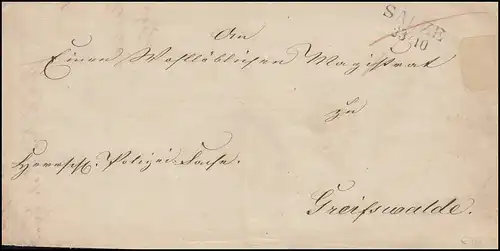 SALZE
23 10
An
Einen Wohllöblichen Magistrat
zu
Herrschl. Polizei-Sache.
Greifswalde.